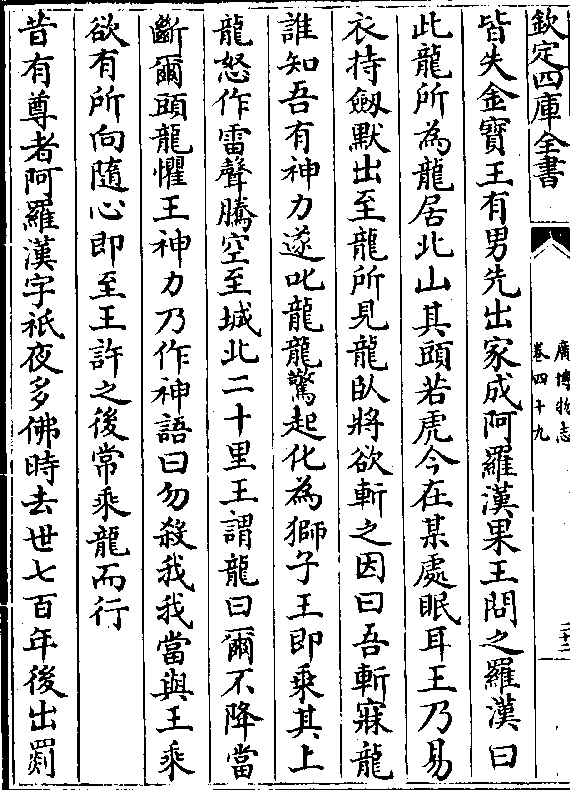 欽定四庫全書
廣博物志
卷四十九
皆失金寶王有男先出家成阿羅漢果王問之羅漢曰
此龍所為龍居北山其頭若虎今在某處眠耳王乃易
衣持劔默出至龍所見龍臥將欲斬之因曰吾斬寐龍
誰知吾有神力遂叱龍龍驚起化為獅子王即乘其上
龍怒作雷聲騰空至城北二十里王謂龍曰爾不降當
斷爾頭龍懼王神力乃作神語曰勿殺我我當與王乘
欲有所向隨心即至王許之後常乘龍而行
昔有尊者阿羅漢字祇夜多佛時去世七百年後出罽